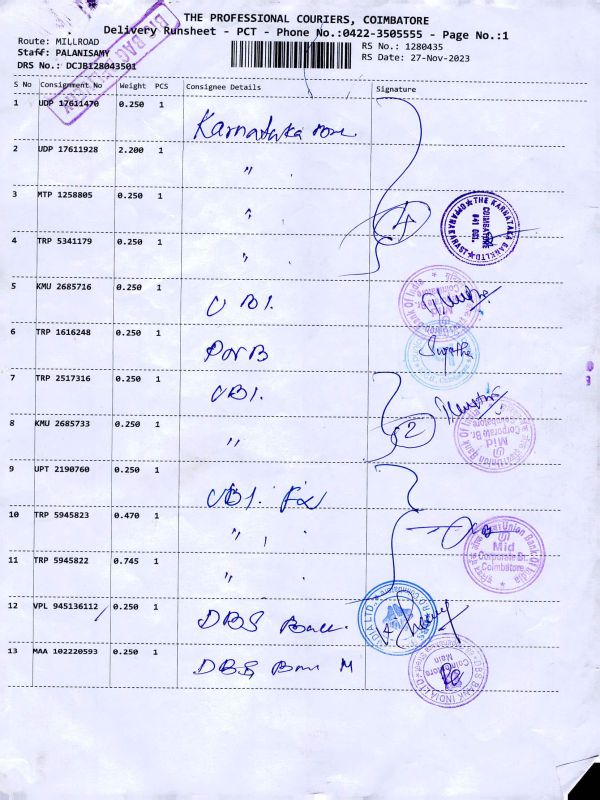 THE PROFESSIONAL COURIERS, COIMBATORE
Delivery Runsheet - PCT - Phone No.:0422-3505555 - Page No.:1
Route: MILLROAD
RS No.: 1280435
Staff: PALANISAMY
RS Date: 27-Nov-2023
DRS No.: DCJB128043501
S No Consignment No Weight PCS Consignee Details Signature
1 UDP 17611470 0.250 1 Karnataka
2 UDP 17611928 2.200 1 "
3 MTP 1258805 0.250 1 "
4 TRP 5341179 0.250 1 "
4
THE KARNATAKA BANK LTD.
COIMBATORE
641 001.
5 KMU 2685716 0.250 1 UBI.
6 TRP 1616248 0.250 1 PNB
Sujatha
7 TRP 2517316 0.250 1 UBI.
8 KMU 2685733 0.250 1 "
2
Union Bank Of India
Mid
Corporate Br.
Coimbatore
9 UPT 2190760 0.250 1 UBI. Fx
10 TRP 5945823 0.470 1 "
11 TRP 5945822 0.745 1 "
Union Bank Of India
Mid
Corporate Br.
Coimbatore
12 VPL 945136112 0.250 1 DBS
13 MAA 102220593 0.250 1 DBS M
DBS BANK INDIA LTD
Coimbatore
Main